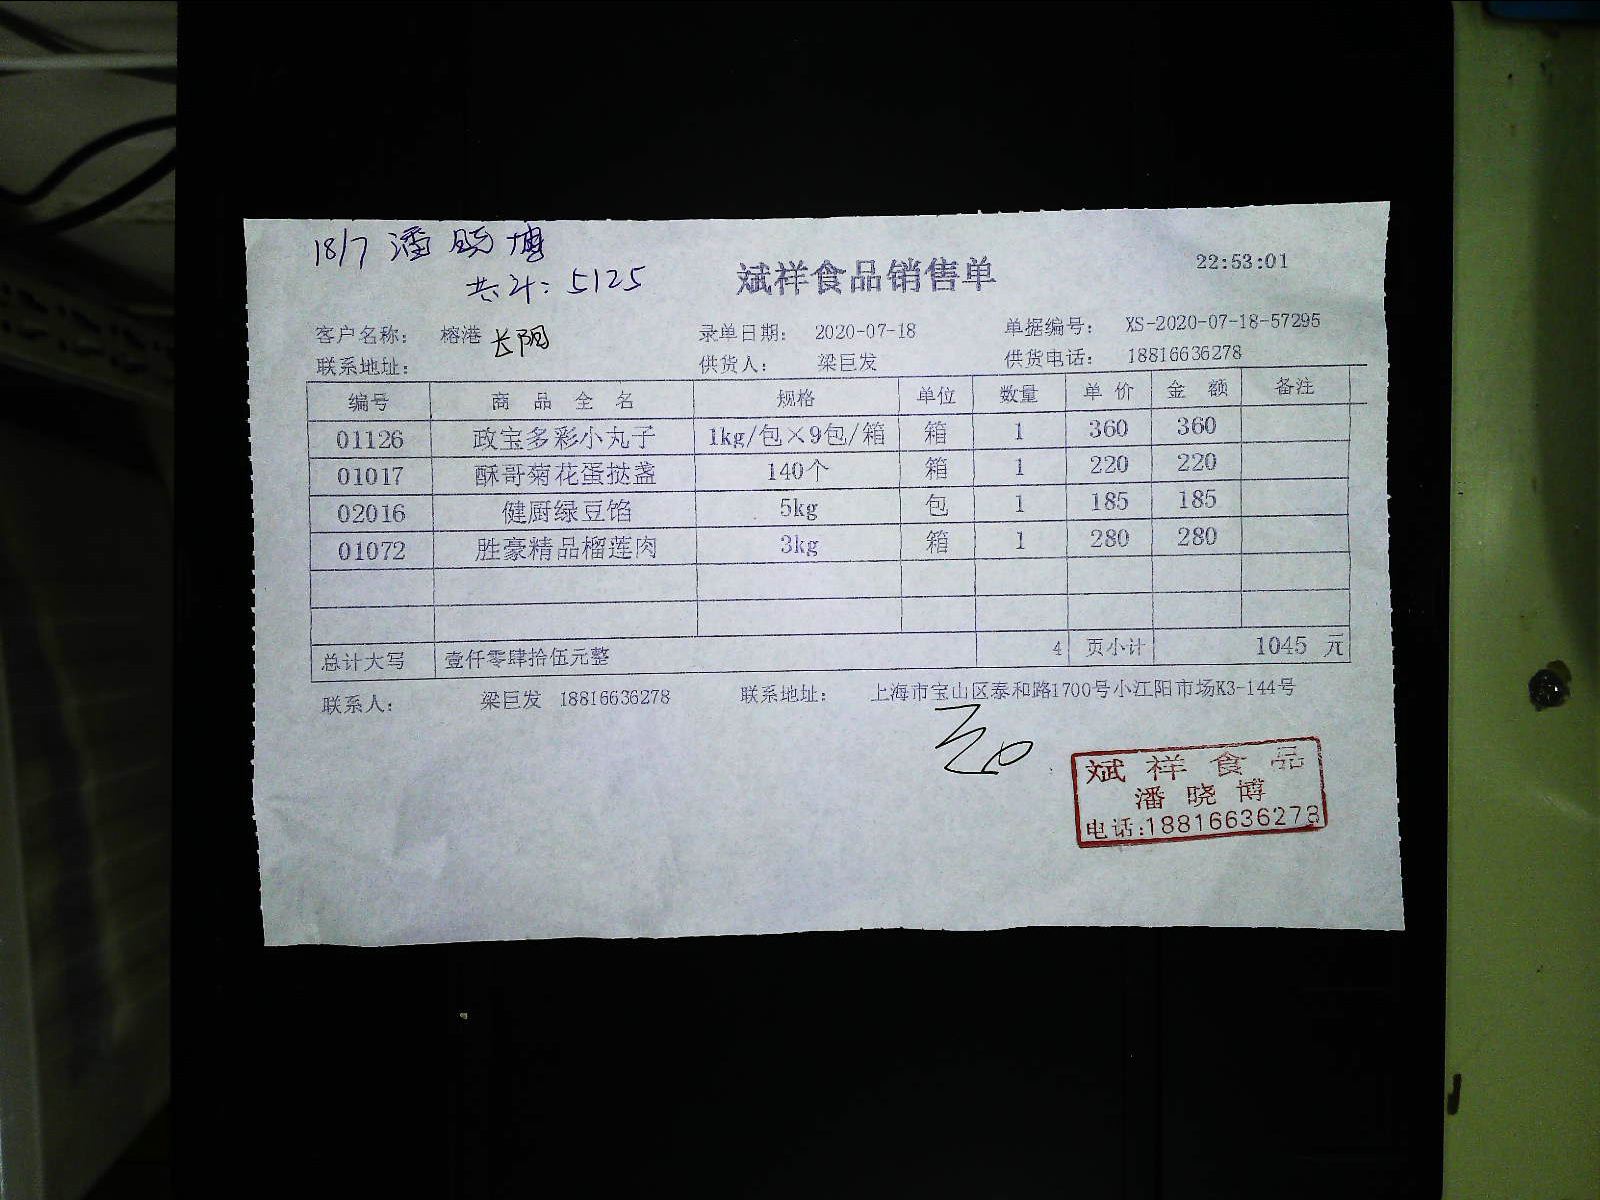 18/7 潘晓博
共计: 5125
斌祥食品销售单 22:53:01
客户名称: 榕港 长阳 录单日期: 2020-07-18 单据编号: XS-2020-07-18-57295
联系地址: 供货人: 梁巨发 供货电话: 18816636278
编号 商品全名 规格 单位 数量 单价 金额 备注
01126 政宝多彩小丸子 1kg/包×9包/箱 箱 1 360 360
01017 酥哥菊花蛋挞盏 140个 箱 1 220 220
02016 健厨绿豆馅 5kg 包 1 185 185
01072 胜豪精品榴莲肉 3kg 箱 1 280 280
总计大写 壹仟零肆拾伍元整 4 页小计 1045 元
联系人: 梁巨发 18816636278 联系地址: 上海市宝山区泰和路1700号小江阳市场K3-144号
斌祥食品
潘晓博
电话:18816636278